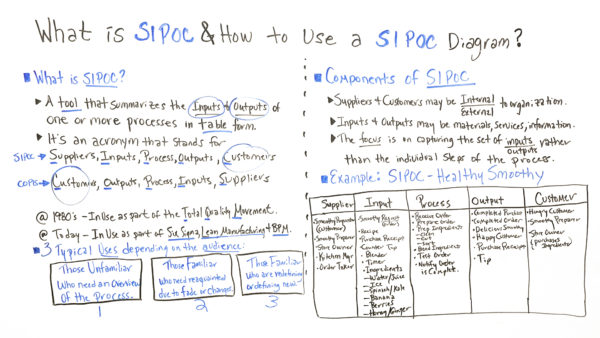 What is SIPOC & How to Use a SIPOC Diagram?
What is SIPOC?
A tool that summarizes the Inputs & Outputs of
one or more processes in table form.
It's an acronym that stands for
SIPOC → Suppliers, Inputs, Process, Outputs, Customers
COPIS → Customers, Outputs, Process, Inputs, Suppliers
@ 1980's - In Use as part of the Total Quality Movement.
@ Today - In Use as part of Six Sigma, Lean Manufacturing & BPM.
3 Typical Uses depending on the audience:
Those Unfamiliar
Who need an Overview
of the Process.
1
Those Familiar
who need reacquainted
due to fade or changes.
2
Those Familiar
who are
or defining new
3
Components of SIPOC
Suppliers & Customers may be Internal
External
to organization.
Inputs & Outputs may be materials, services, information.
The focus is on capturing the set of inputs
outputs
rather
than the individual steps of the process.
Example: SIPOC - Healthy Smoothy
Supplier
(Customer)
Smoothy Preparer
Store Owner
Kitchen Mgr
Order Taker
Input
Smoothy
(Order)
Recipe
Purchase Receipt
Counter Top
Blender
Timer
Ingredients
- Water/Juice
- Ice
- Spinach/Kale
- Banana
- Berries
- Honey/Ginger
Process
Receive Order
Prepare Order
Prep Ingredients
- Clean
- Cut
- Sort
Blend Ingredients
Test Order
Notify Order
is Complete.
Output
Completed Purchase
Completed Order
Delicious Smoothy
Happy Customer
Purchase Receipt
Tip
Customer
Hungry Customer
Smoothy Preparer
Store Owner
(purchases
ingredients)